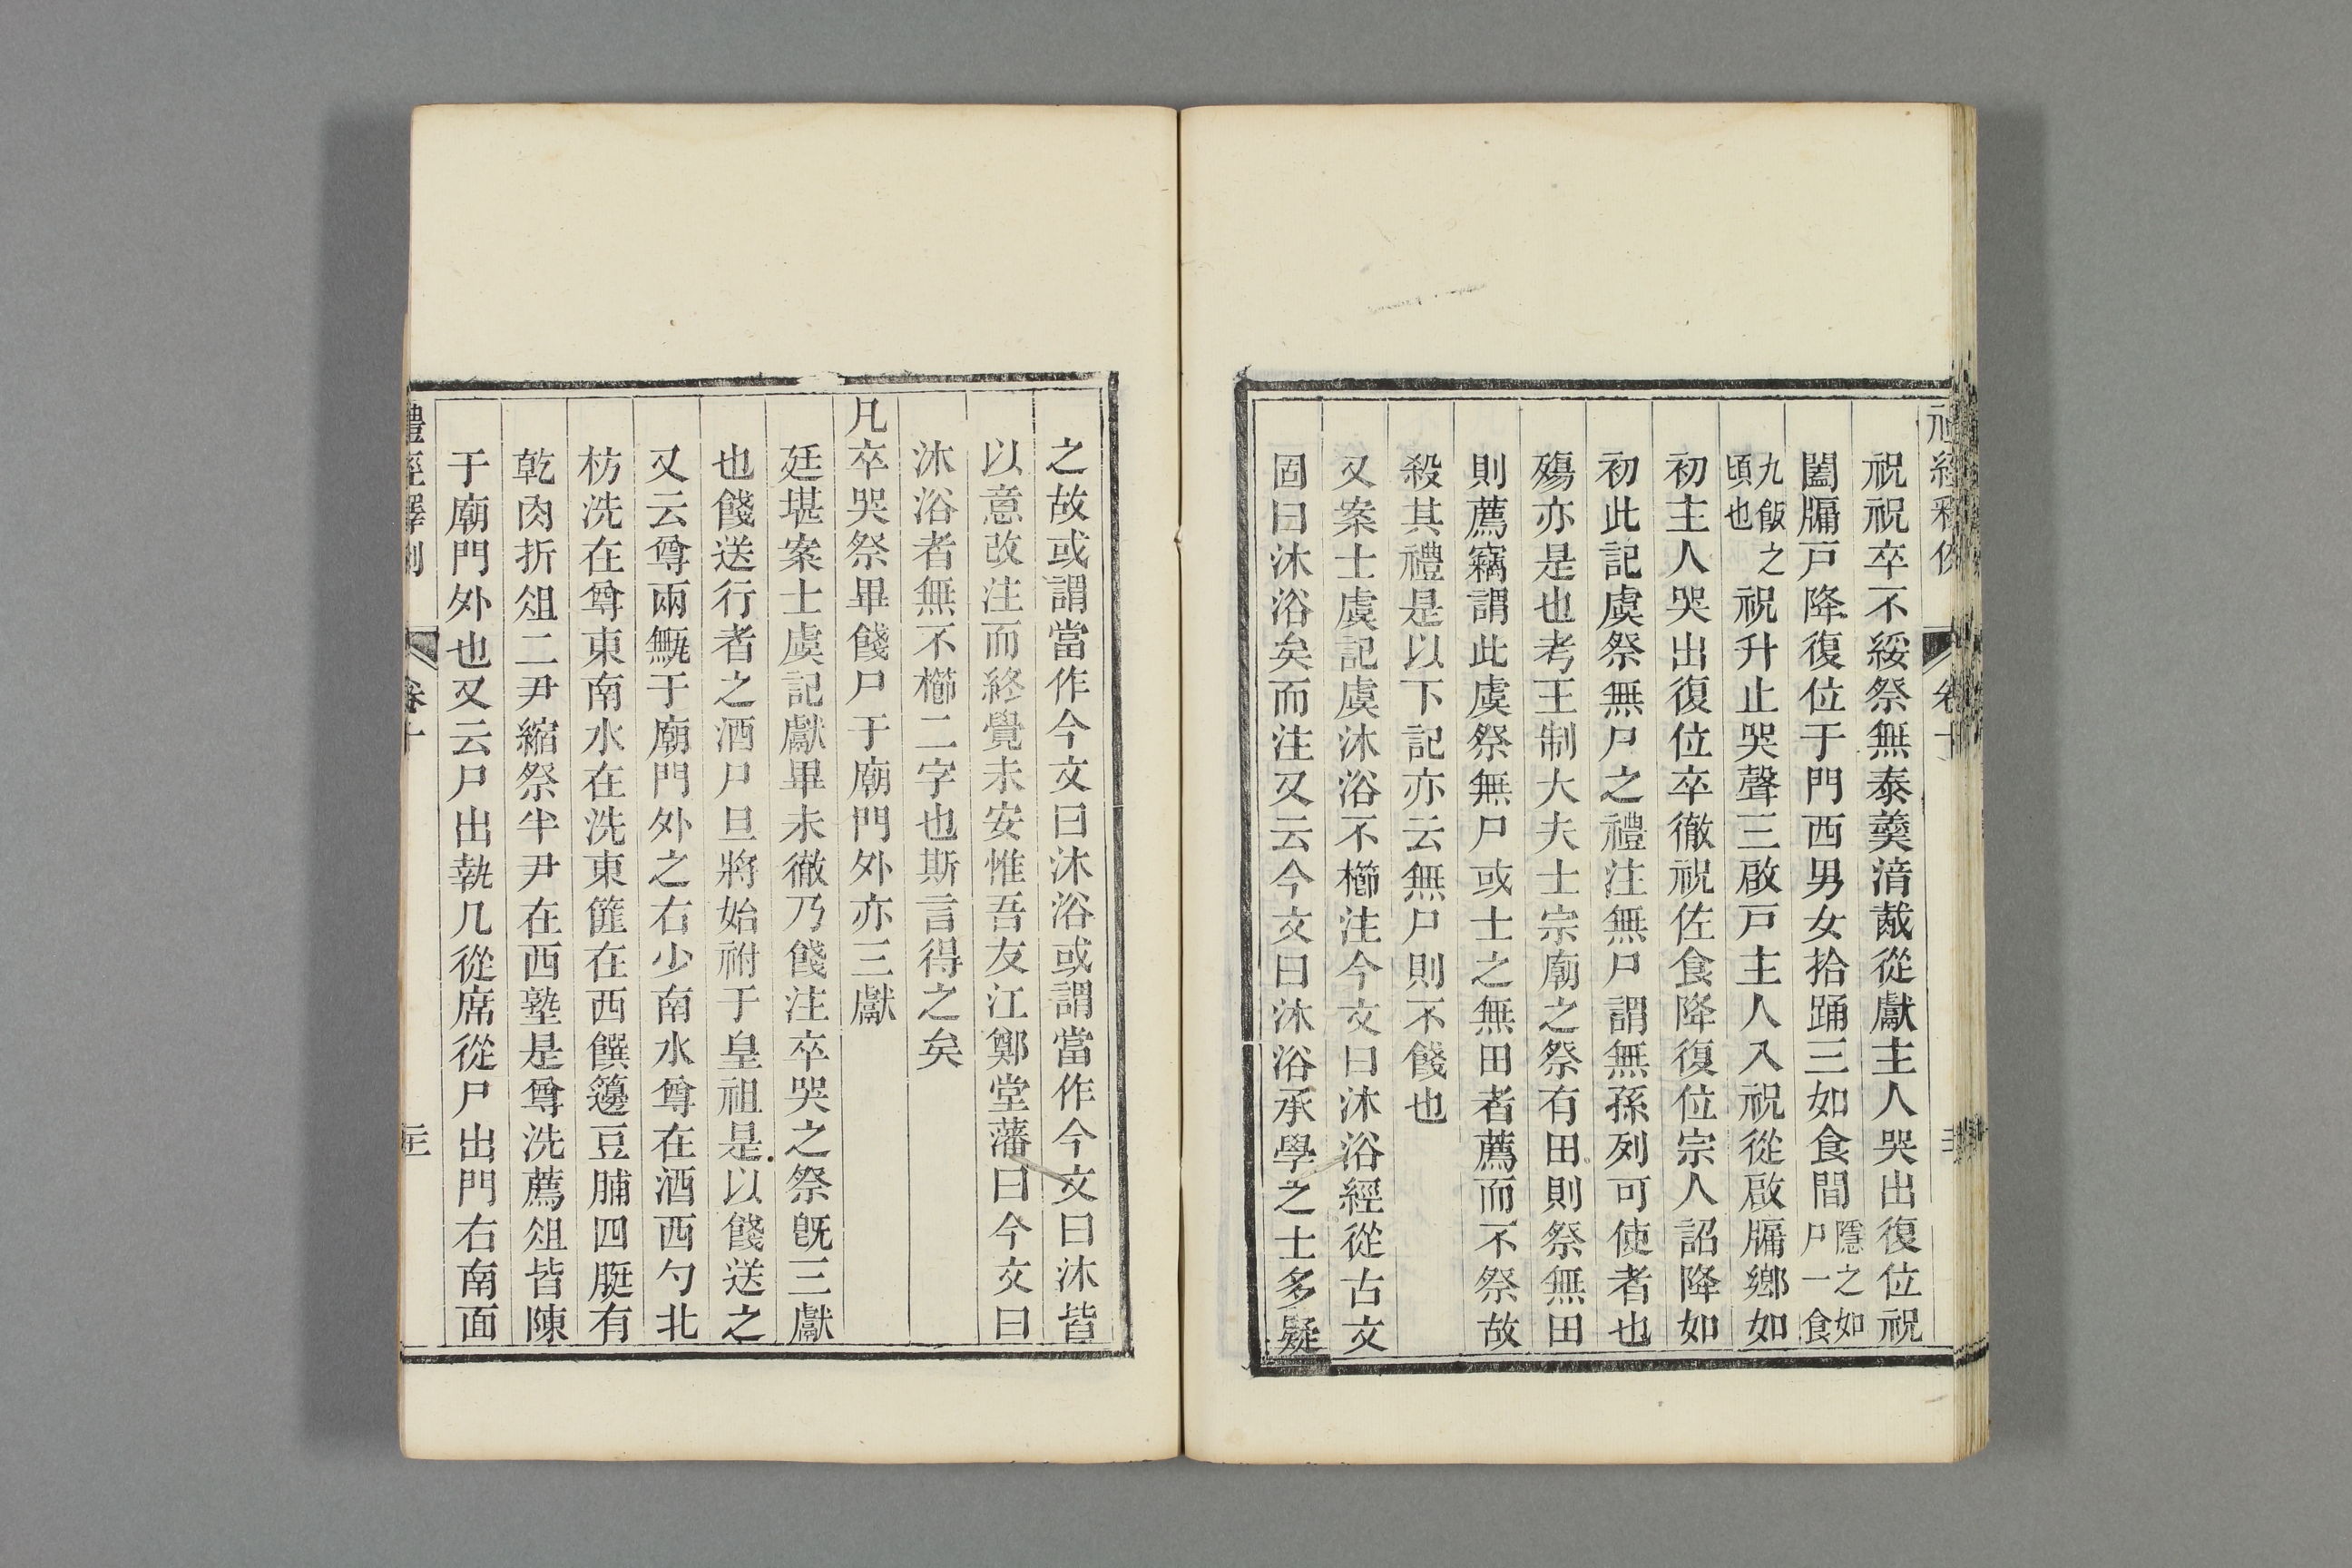 祝祝卒不綏祭無泰羹湆胾從獻主人哭出復位祝
闔牖戶降復位于門西男女拾踊三如食間隱之如尸一食
九飯之頃也祝升止哭聲三啟戶主人入祝從啟牖鄉如
初主人哭出復位卒徹祝佐食降復位宗人詔降如
初此記虞祭無尸之禮注無尸謂無孫列可使者也
殤亦是也考王制大夫士宗廟之祭有田則祭無田
則薦竊謂此虞祭無尸或士之無田者薦而不祭故
殺其禮是以下記亦云無尸則不餞也
又案士虞記虞沐浴不櫛注今文曰沐浴經從古文
固曰沐浴矣而注又云今文曰沐浴承學之士多疑
之故或謂當作今文曰沐浴或謂當作今文曰沐皆
以意改注而終覺未安惟吾友江鄭堂藩曰今文曰
沐浴者無不櫛二字也斯言得之矣
凡卒哭祭畢餞尸于廟門外亦三獻
廷堪案士虞記獻畢未徹乃餞注卒哭之祭旣三獻
也餞送行者之酒尸旦將始祔于皇祖是以餞送之
又云尊兩甒于廟門外之右少南水尊在酒西勺北
枋洗在尊東南水在洗東篚在西饌籩豆脯四脡有
乾肉折俎二尹縮祭半尹在西塾是尊洗薦俎皆陳
于廟門外也又云尸出執几從席從尸出門右南面
禮經釋例 卷十